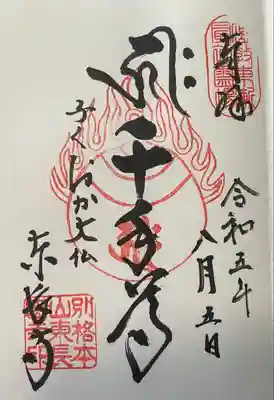 奉拝
令和五年
八月五日
千手尊
ふくおか大仏
東長寺
別格本
山東長
寺之印